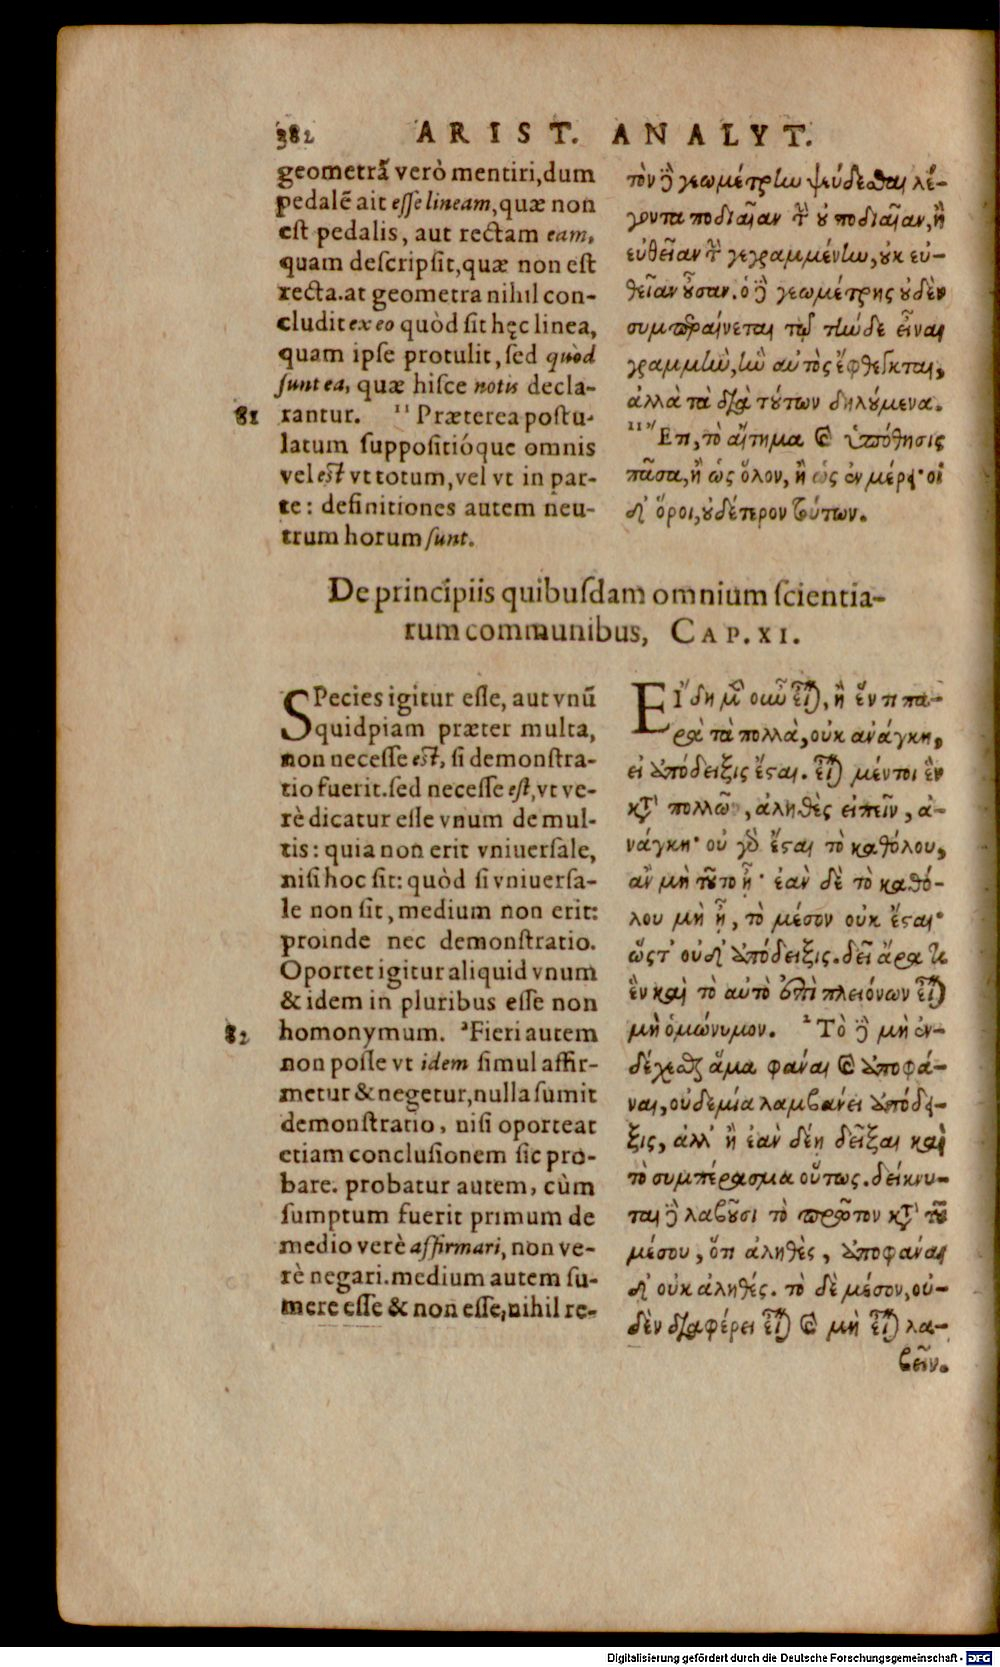 382 ARIST. ANALYT.
geometrã verò mentiri, dum
pedalẽ ait esse lineam, quæ non
est pedalis, aut rectam eam,
quam descripsit, quæ non est
recta. at geometra nihil con-
cludit ex eo quòd sit hęc linea,
quam ipse protulit, sed quòd
sunt ea, quæ hisce notis decla-
81 rantur. 11 Præterea postu-
latum suppositióque omnis
vel est vt totum, vel vt in par-
te: definitiones autem neu-
trum horum sunt.
τὸν ὃ γεωμέτρην ψεύδεσθαι λέ-
γοντα ποδιαῖαν τ̀ ȣ ποδιαῖαν, ἢ
εὐθεῖαν τ̀ γεγραμμένην, ȣκ εὐ-
θεῖαν ȣ̓͂σαν. ὁ ὃ γεωμέτρης ȣδὲν
συμπεραίνεται τῷ τήνδε εἶναι
γραμμὴν, ἣν αὐτὸς ἔφθεγκται,
ἀλλὰ τὰ διὰ τȣ́των δηλȣ́μενα.
11 Ἔτι, τὸ αἴτημα καὶ ὑπόθησις
πᾶσα, ἢ ὡς ὅλον, ἢ ὡς ἐν μέρει· οἱ
δ' ὅροι, ȣδέτερον τύτων.
De principiis quibusdam omnium scientia-
rum communibus, CAP. XI.
SPecies igitur esse, aut vnũ
quidpiam præter multa,
non necesse est, si demonstra-
tio fuerit. sed necesse est, vt ve-
rè dicatur esse vnum de mul-
tis: quia non erit vniuersale,
nisi hoc sit: quòd si vniuersa-
le non sit, medium non erit:
proinde nec demonstratio.
Oportet igitur aliquid vnum
& idem in pluribus esse non
82 homonymum. 2 Fieri autem
non posse vt idem simul affir-
metur & negetur, nulla sumit
demonstratio, nisi oporteat
etiam conclusionem sic pro-
bare. probatur autem, cùm
sumptum fuerit primum de
medio verè affirmari, non ve-
rè negari. medium autem su-
mere esse & non esse, nihil re-
ΕἼδη μὲν οὖν εἶναι, ἢ ἕν τι πα-
ρὰ τὰ πολλὰ, οὐκ ἀνάγκη,
εἰ ἀπόδειξις ἔσται. εἶναι μέντοι ἓν
κτ̀ πολλῶν, ἀληθὲς εἰπεῖν, ἀ-
νάγκη· οὐ γὰρ ἔσται τὸ καθόλου,
ἂν μὴ τȣ͂το ᾖ· ἐὰν δὲ τὸ καθό-
λου μὴ ᾖ, τὸ μέσον οὐκ ἔσται·
ὥστ' οὐδ' ἀπόδειξις. δεῖ ἄρα τι
ἓν καὶ τὸ αὐτὸ ἐπὶ πλειόνων εἶναι
μὴ ὁμώνυμον. 2 Τὸ ὃ μὴ ἐν-
δέχεσθαι ἅμα φάναι καὶ ἀποφά-
ναι, οὐδεμία λαμβάνει ἀπόδει-
ξις, ἀλλ' ἢ ἐὰν δέῃ δεῖξαι καὶ
τὸ συμπέρασμα οὕτως. δείκνυ-
ται ὃ λαβȣ͂σι τὸ πρῶτον κτ̀ τȣ͂
μέσου, ὅτι ἀληθὲς, ἀποφάναι
δ' οὐκ ἀληθές. τὸ δὲ μέσον, οὐ-
δὲν διαφέρει εἶναι καὶ μὴ εἶναι λα-
βεῖν.
Digitalisierung gefördert durch die Deutsche Forschungsgemeinschaft - DFG